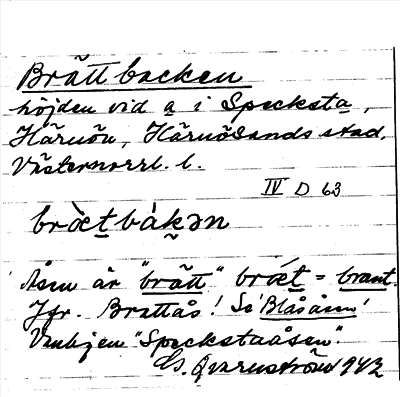 Brätt backen
höjden vid a i Specksta,
Härnön, Härnösands stad,
Västernorrl. l.
IV D 63
bræ̀tbàkən
Åsen är "brätt" brǽt = brant.
Jfr. Brattås! Se Blååsen!
Vanligen "Speckstaåsen".
G. Qvarnström 1942